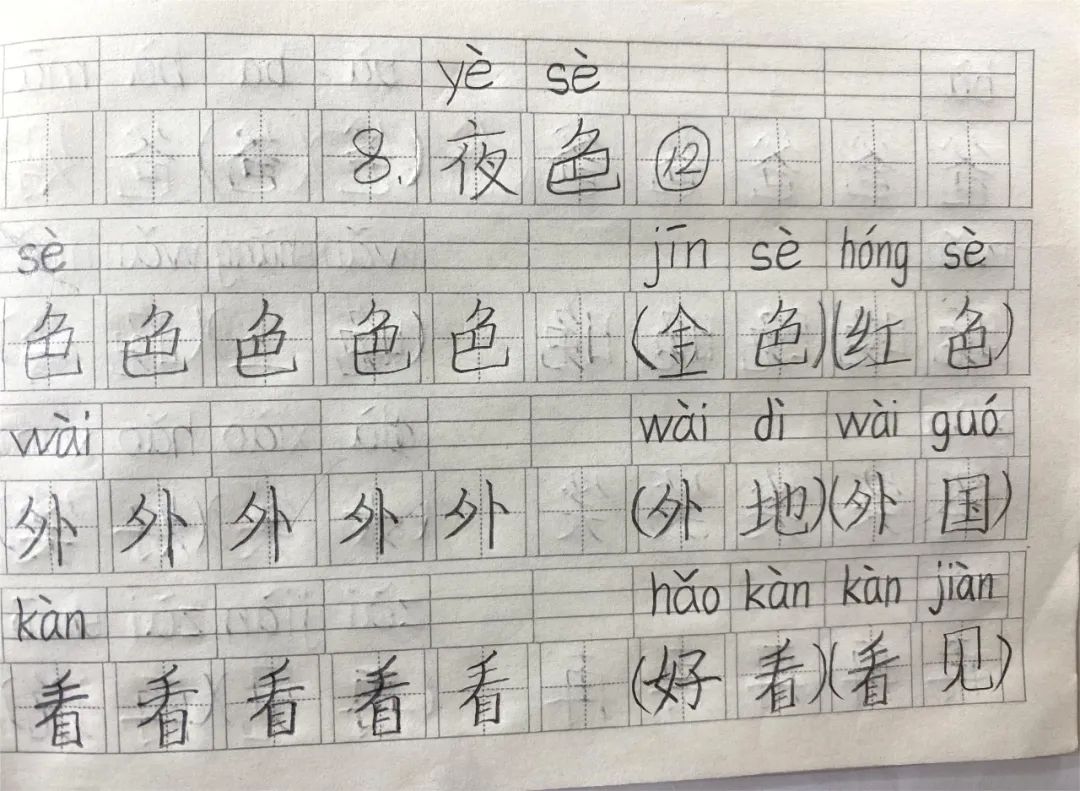 yè sè
8. 夜色 ⑫
sè jīn sè hóng sè
色 色 色 色 色 (金色)(红色)
wài wài dì wài guó
外 外 外 外 外 (外地)(外国)
kàn hǎo kàn kàn jiàn
看 看 看 看 看 (好看)(看见)